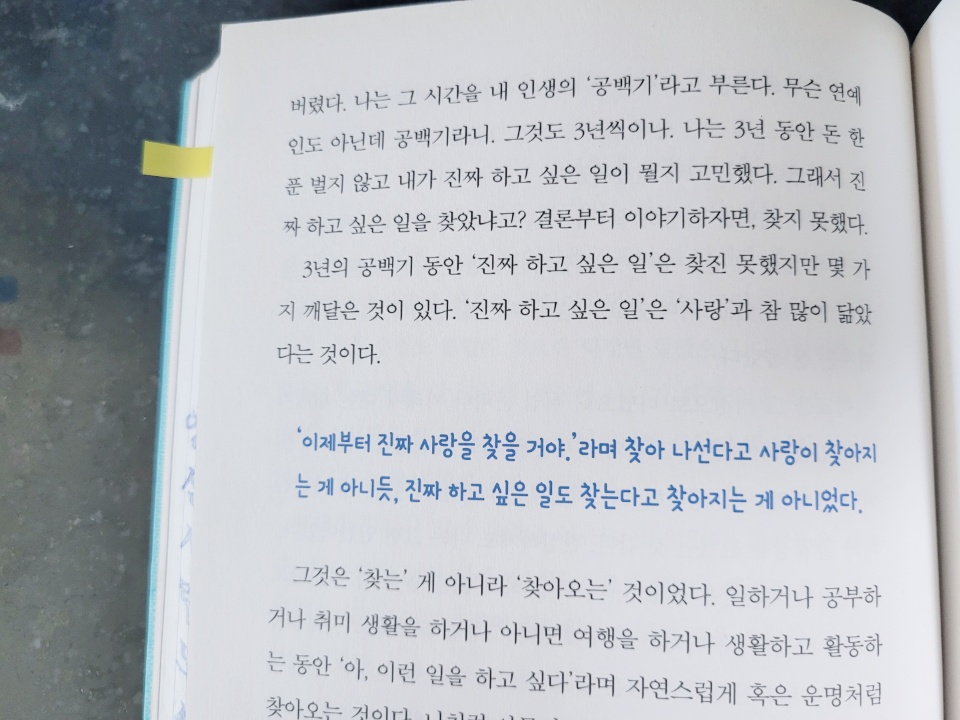 버렸다. 나는 그 시간을 내 인생의 ‘공백기’라고 부른다. 무슨 연예
인도 아닌데 공백기라니. 그것도 3년씩이나. 나는 3년 동안 돈 한
푼 벌지 않고 내가 진짜 하고 싶은 일이 뭘지 고민했다. 그래서 진
짜 하고 싶은 일을 찾았냐고? 결론부터 이야기하자면, 찾지 못했다.
3년의 공백기 동안 ‘진짜 하고 싶은 일’은 찾진 못했지만 몇 가
지 깨달은 것이 있다. ‘진짜 하고 싶은 일’은 ‘사랑’과 참 많이 닮았
다는 것이다.
‘이제부터 진짜 사랑을 찾을 거야.’라며 찾아 나선다고 사랑이 찾아지
는 게 아니듯, 진짜 하고 싶은 일도 찾는다고 찾아지는 게 아니었다.
그것은 ‘찾는’ 게 아니라 ‘찾아오는’ 것이었다. 일하거나 공부하
거나 취미 생활을 하거나 아니면 여행을 하거나 생활하고 활동하
는 동안 ‘아, 이런 일을 하고 싶다’라며 자연스럽게 혹은 운명처럼
찾아오는 것이다.